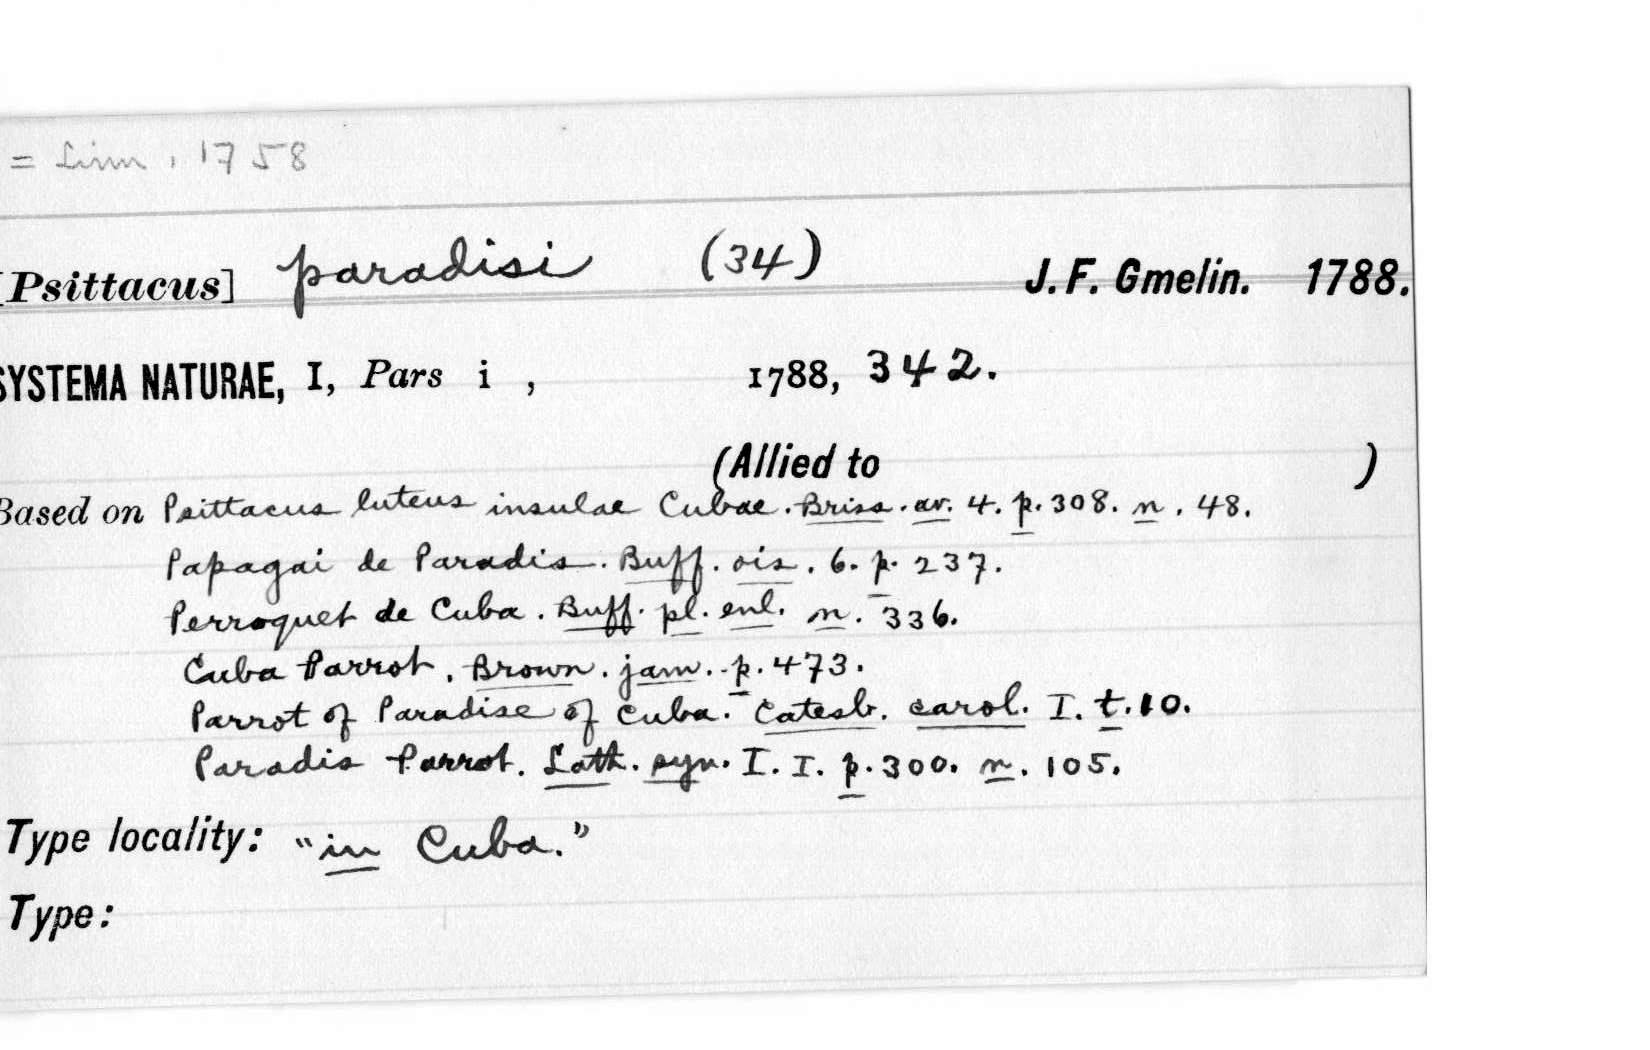 = Linn, 1758
[Psittacus] paradisi (34) J. F. Gmelin. 1788.
SYSTEMA NATURAE, I, Pars i , 1788, 342.
(Allied to )
Based on Psittacus luteus insulae Cubae. Briss. av. 4. p. 308. n. 48.
Papagai de Paradis. Buff. ois. 6. p. 237.
Perroquet de Cuba. Buff. pl. enl. n. 336.
Cuba Parrot. Brown. jam. p. 473.
Parrot of Paradise of Cuba. Catesb. carol. I. t. 10.
Paradis Parrot. Lath. syn. I. I. p. 300. n. 105.
Type locality: "in Cuba."
Type: